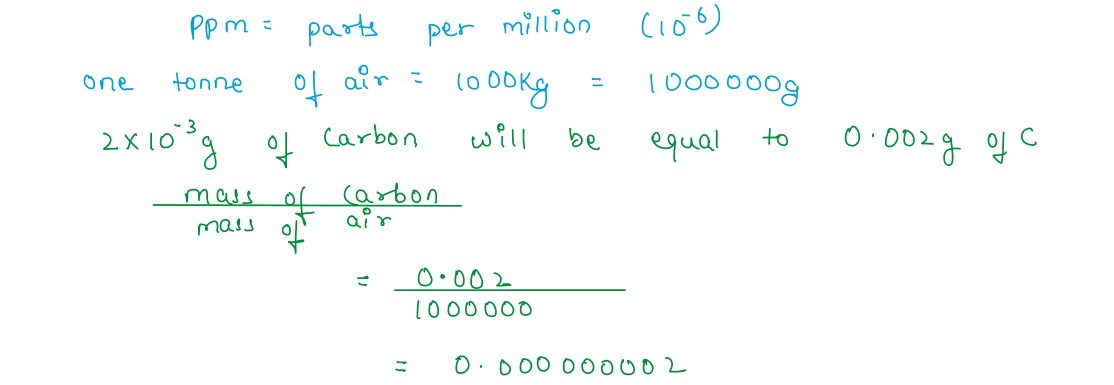 ppm = parts per million (10⁻⁶)
one tonne of air = 1000Kg = 1000000g
2×10⁻³g of carbon will be equal to 0.002g of C
mass of carbon
mass of air
= 0.002
1000000
= 0.000000002